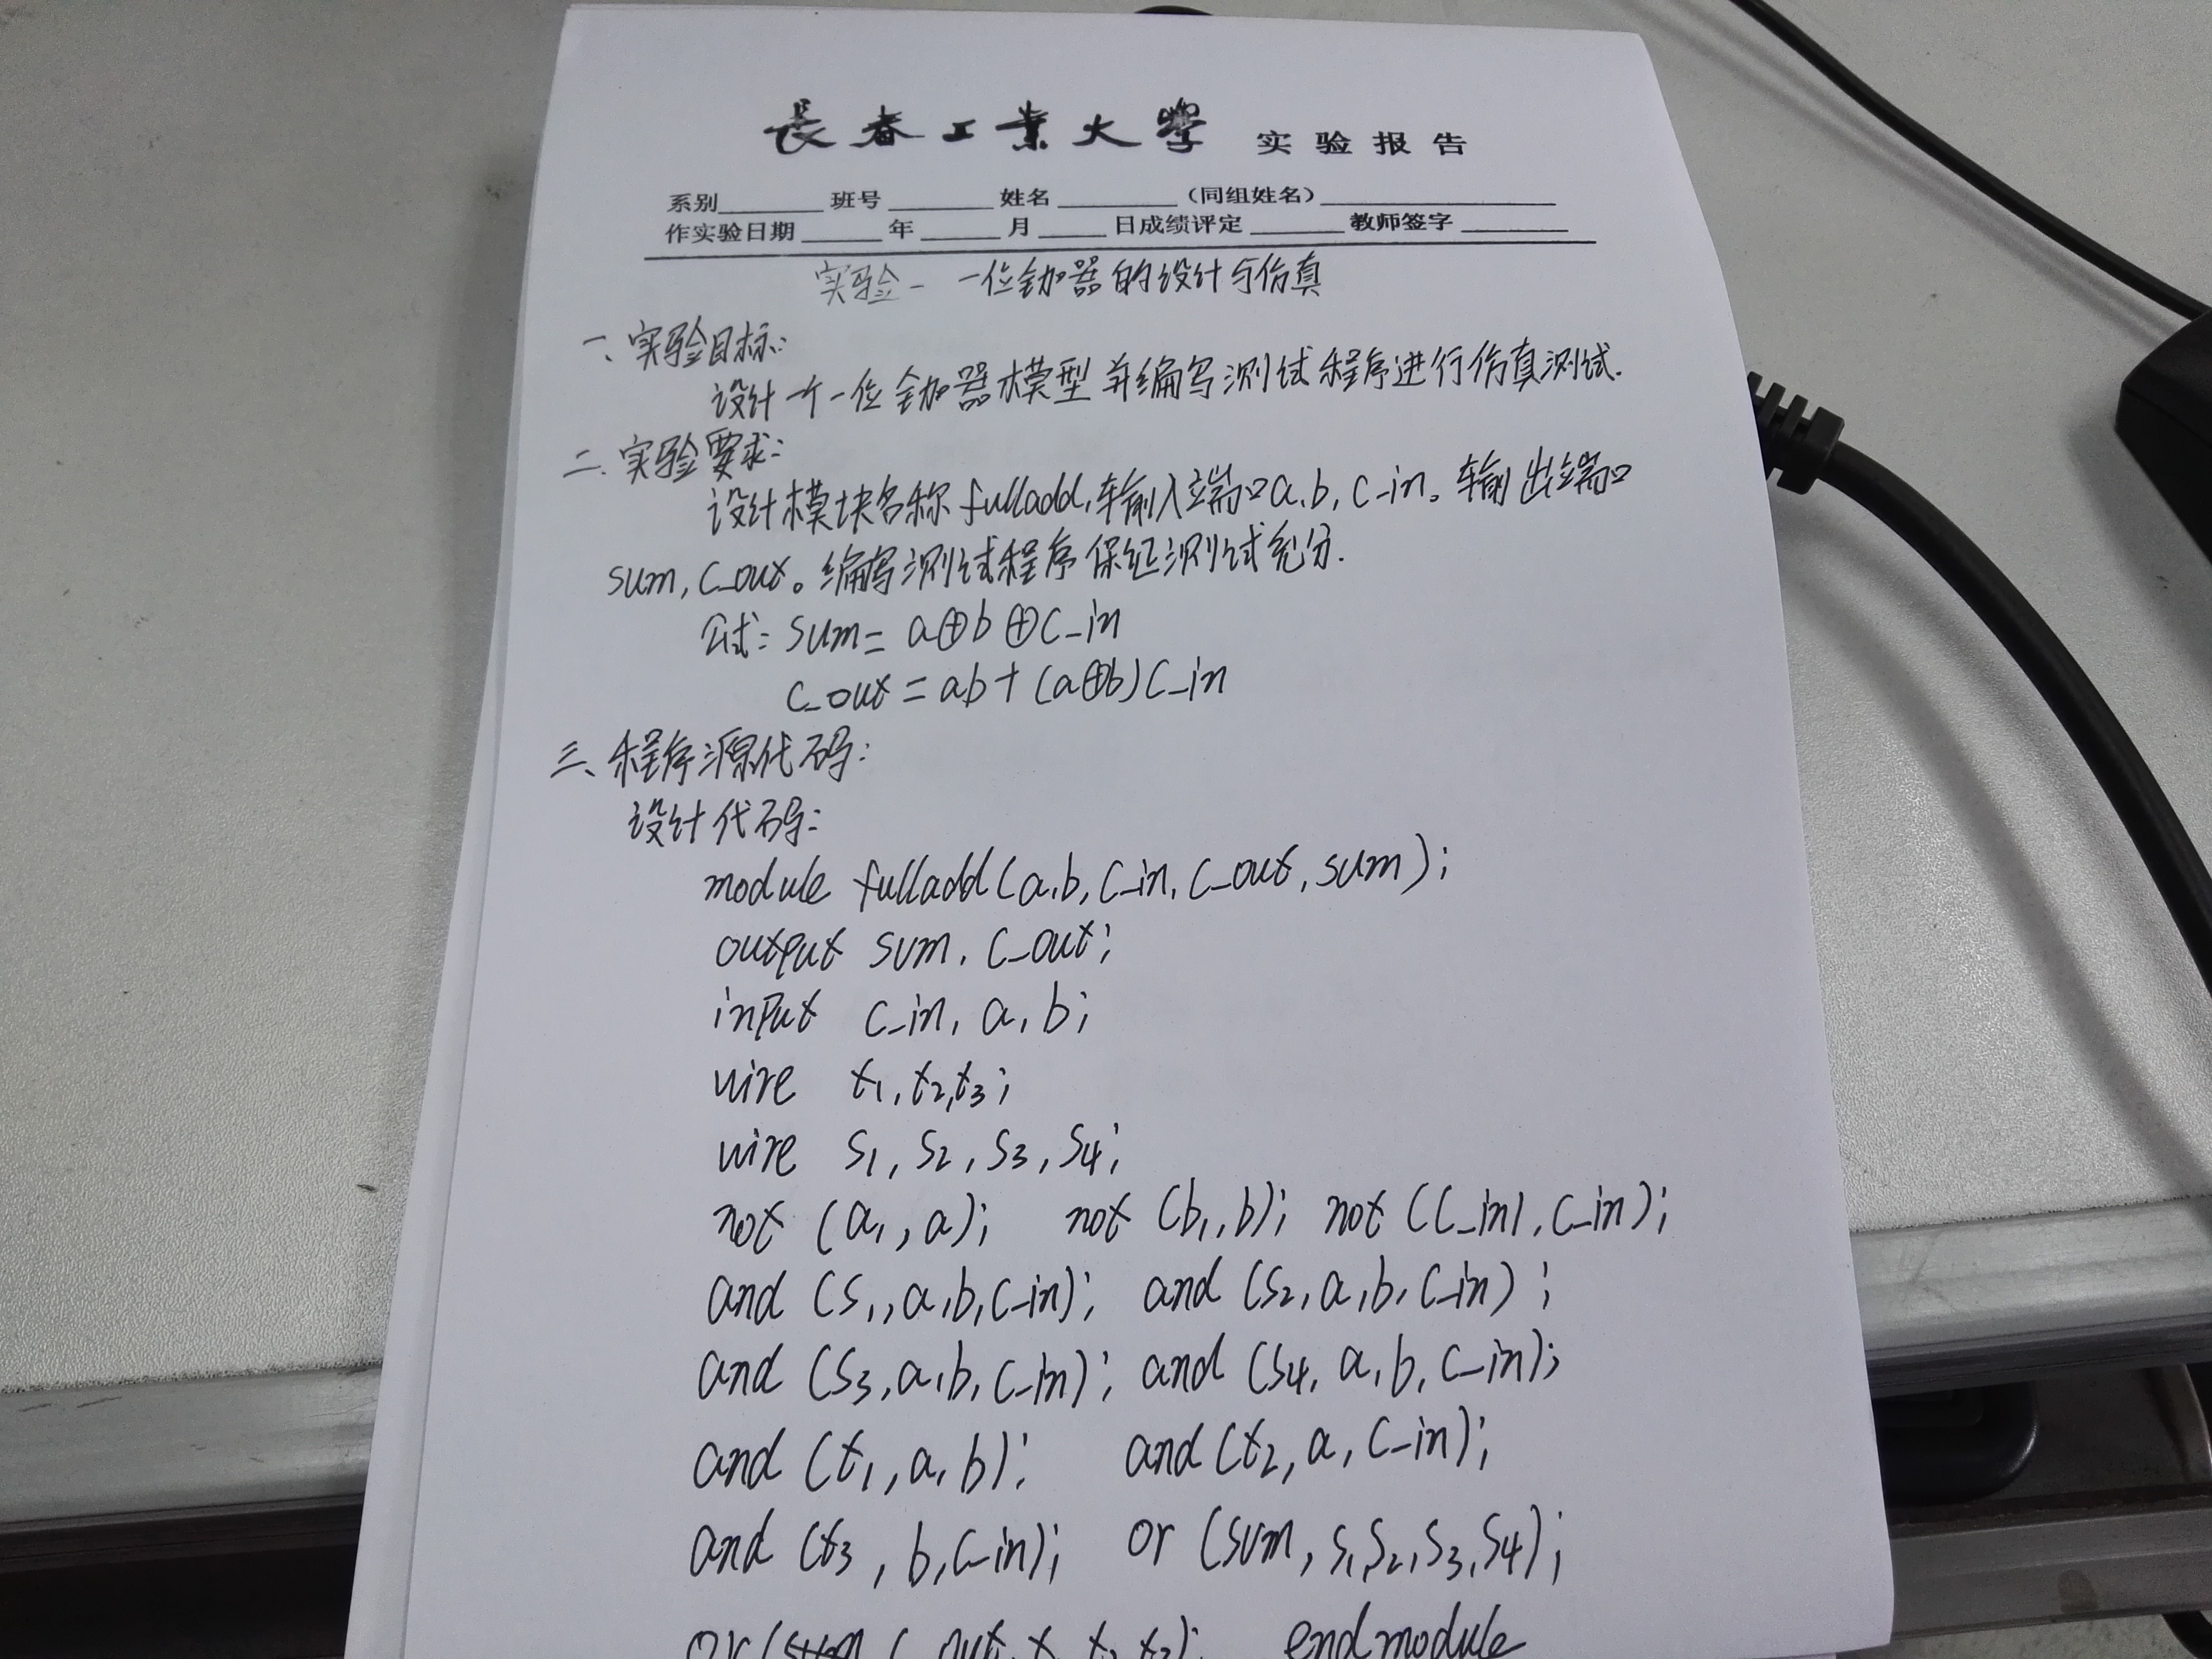 長春工業大學 实验报告
系别 班号 姓名 (同组姓名)
作实验日期 年 月 日成绩评定 教师签字
实验一 一位全加器的设计与仿真
一、实验目标:
设计一个一位全加器模型并编写测试程序进行仿真测试.
二.实验要求:
设计模块名称fulladd,输入端口a,b,c_in。输出端口
sum,c_out。编写测试程序保证测试充分.
公式: sum= a⊕b⊕c_in
c_out = ab+(a⊕b)c_in
三、程序源代码:
设计代码:
module fulladd(a,b,c_in,c_out,sum);
output sum,c_out;
input c_in,a,b;
wire t1,t2,t3;
wire s1,s2,s3,s4;
not (a1,a); not (b1,b); not (c_in1,c_in);
and (s1,a,b,c_in); and (s2,a,b,c_in);
and (s3,a,b,c_in); and (s4,a,b,c_in);
and (t1,a,b); and(t2,a,c_in);
and (t3,b,c_in); or (sum,s1,s2,s3,s4);
or( c_out, t2,t3); endmodule